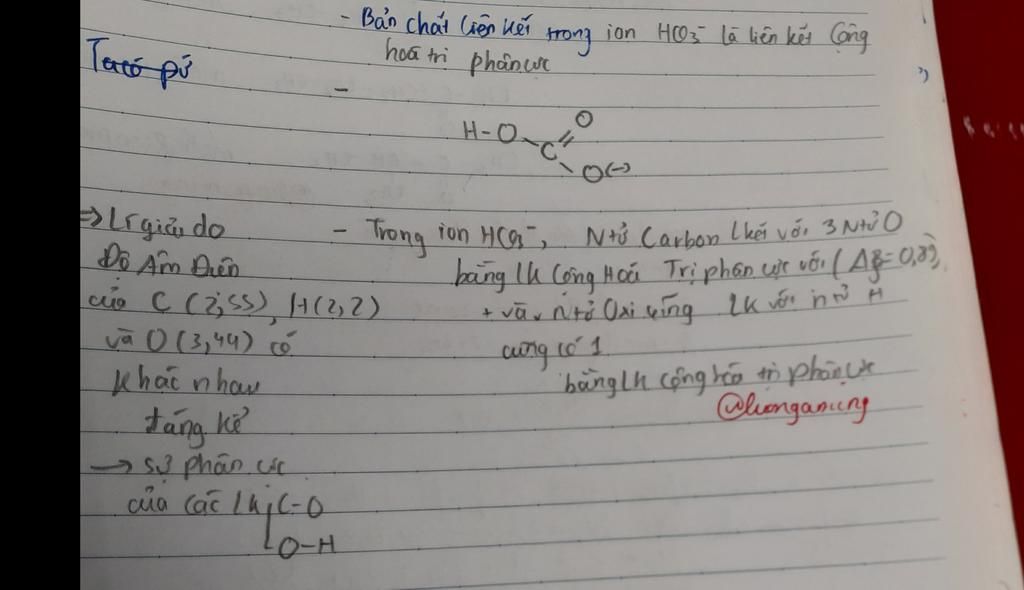 - Bản chất liên kết trong ion HCO3- là liên kết Cộng
hoá trị phân cực
Ta có pứ
-
H-O
O
C
O(-)
=> Lí giải do
Độ Âm Điện
của C (2,55), H(2,2)
và O (3,44) có
khác nhau
đáng kể
→ sự phân cực
của các lk C-O
O-H
- Trong ion HCO3-, Ntử Carbon lkết với 3 Ntử O
bằng lk Cộng Hoá Trị phân cực với (Δ = 0,89)
+ và ntử Oxi lk với ntử H
cũng có 1
bằng lk cộng hóa trị phân cực